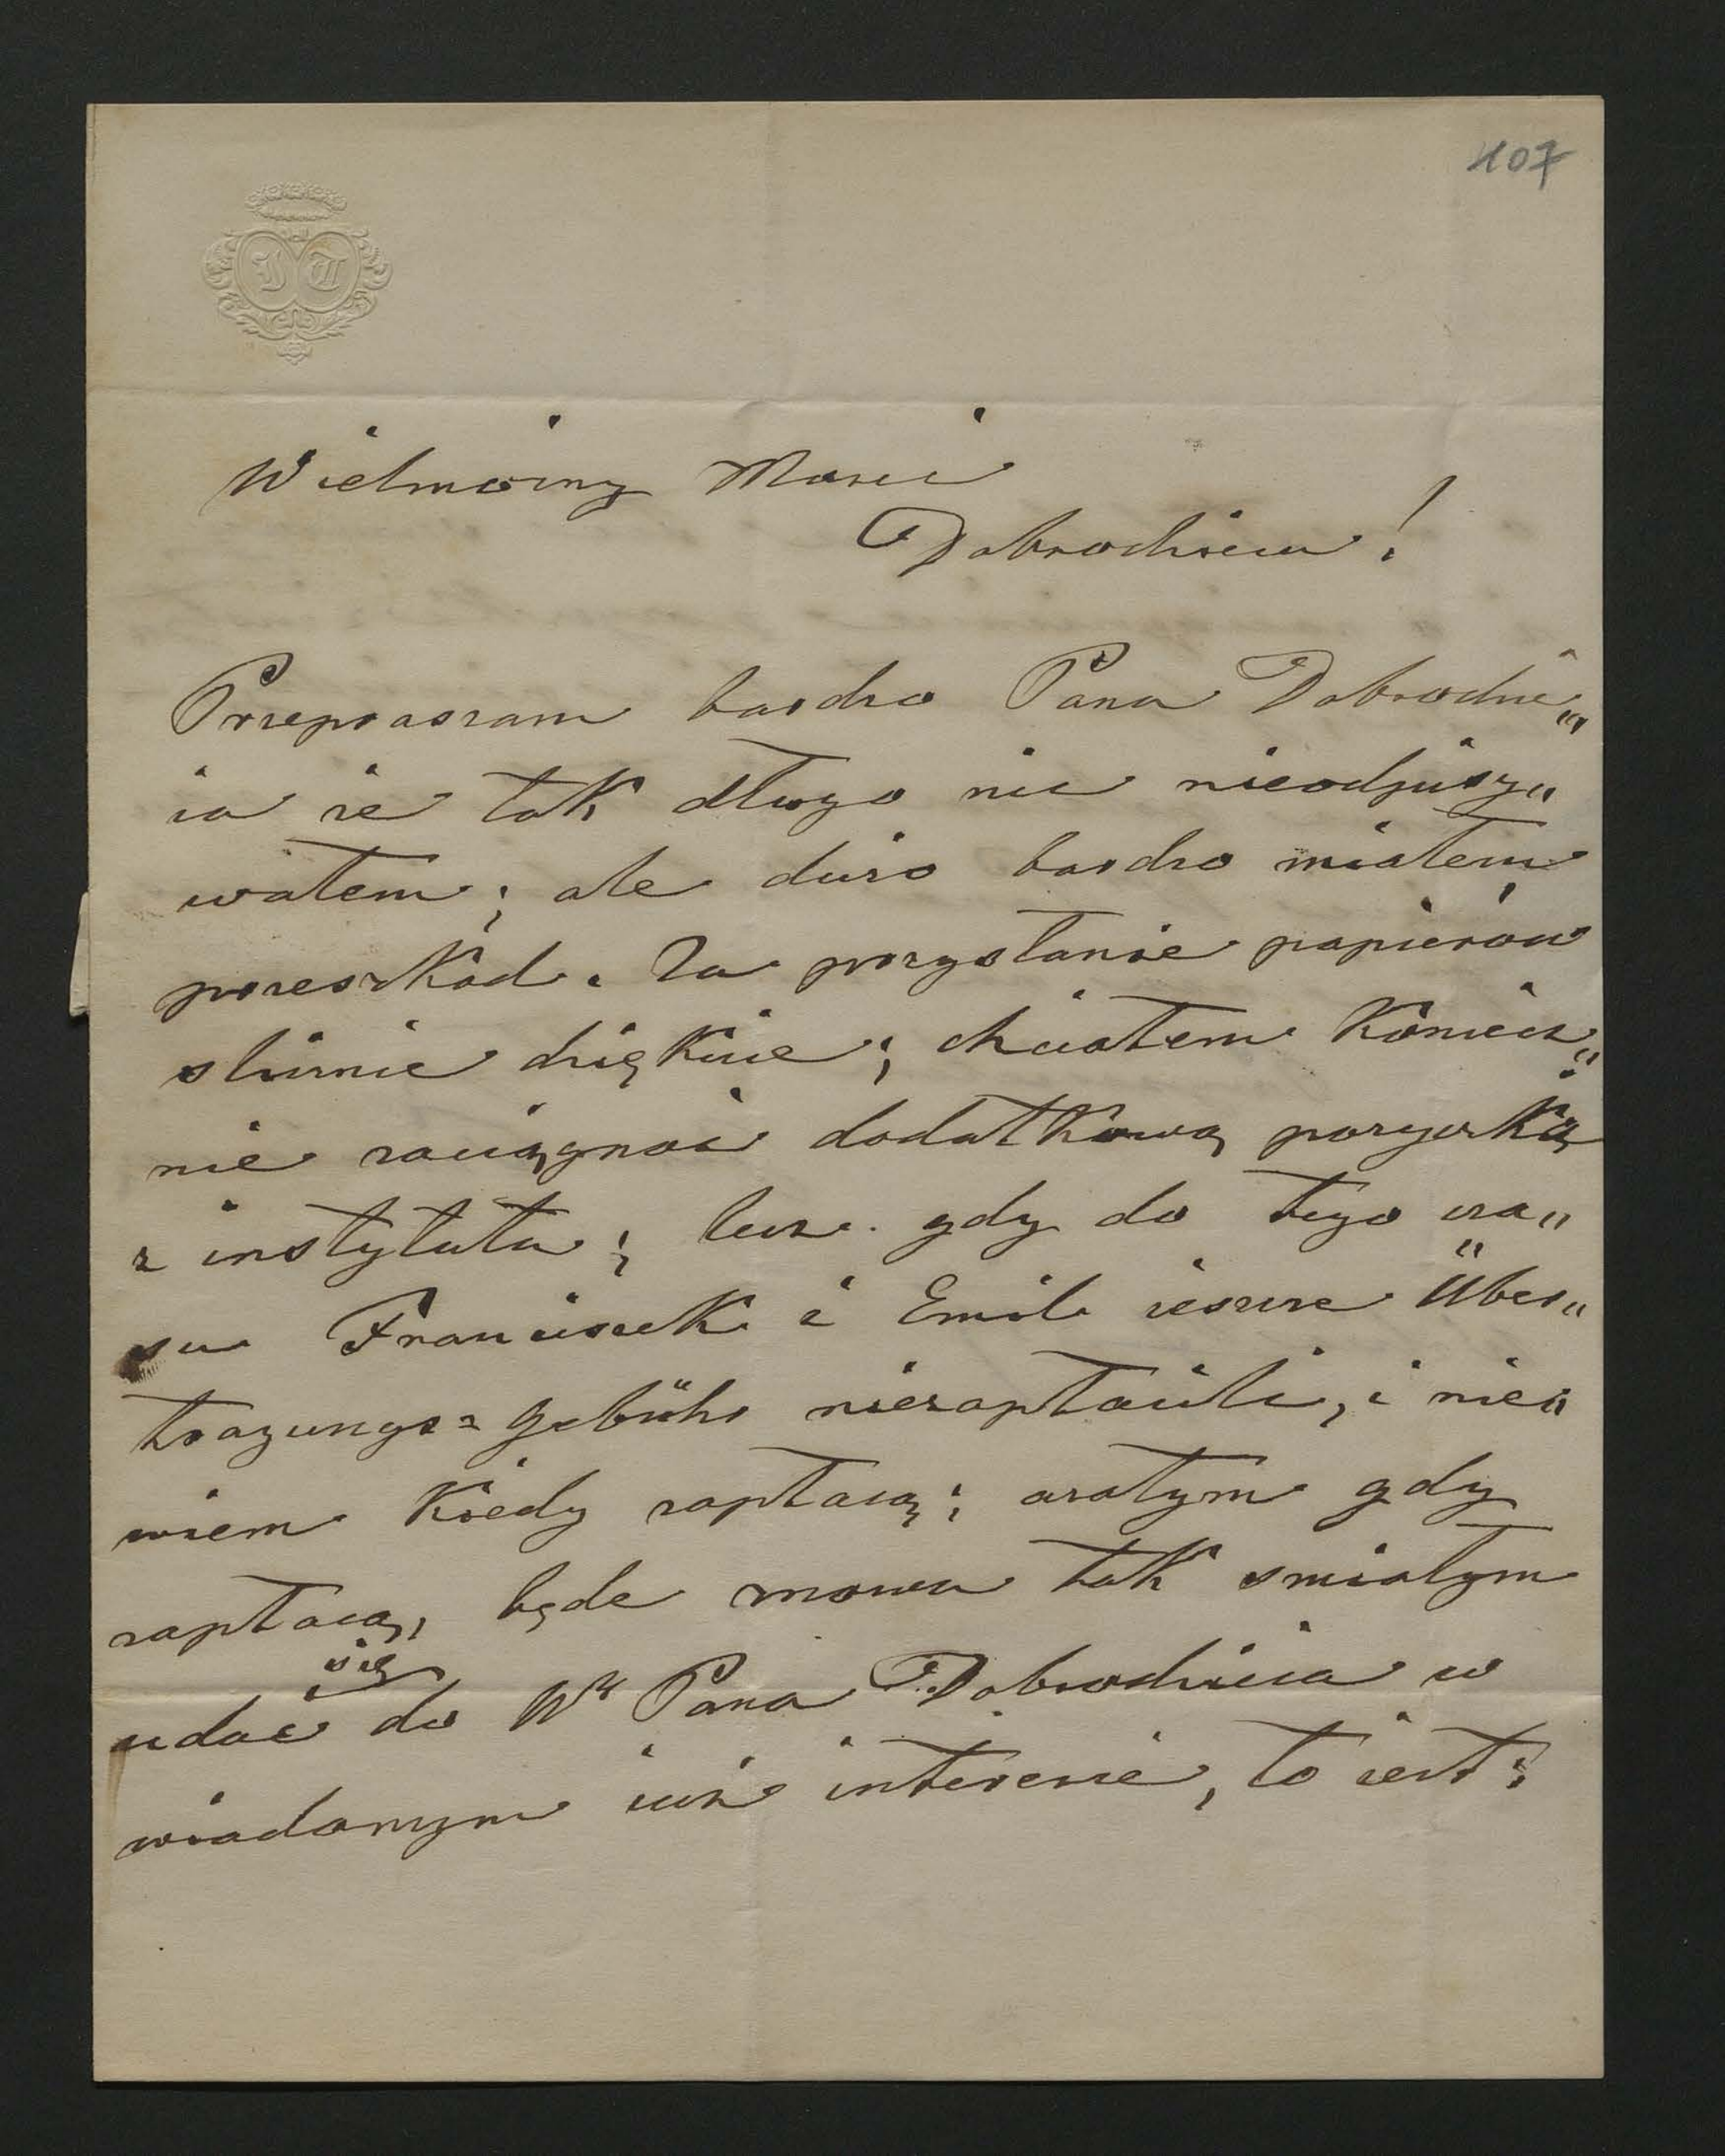 107
I T
Wielmożny Mości
Dobrodzieiu!
Przepraszam bardzo Pana Dobrodzie„
ia że tak długo nic nieodpisy„
wałem; ale dużo bardzo miałem
przeszkód. Za przysłanie papierów
ślicznie dziękuie; chciałem koniecz„
nie zaciągnąć dodatkową pożyczkę
z instytutu; lecz gdy do tego cza„
su Franciszek i Emil ieszcze Über„
tragungs=gebühr niezapłacili, i nie„
wiem kiedy zapłacą; azatym gdy
zapłacą, będe znowu tak śmiałym
udać się do Wº Pana Dobrodzieia w
wiadomym iuż interesie, to iest: